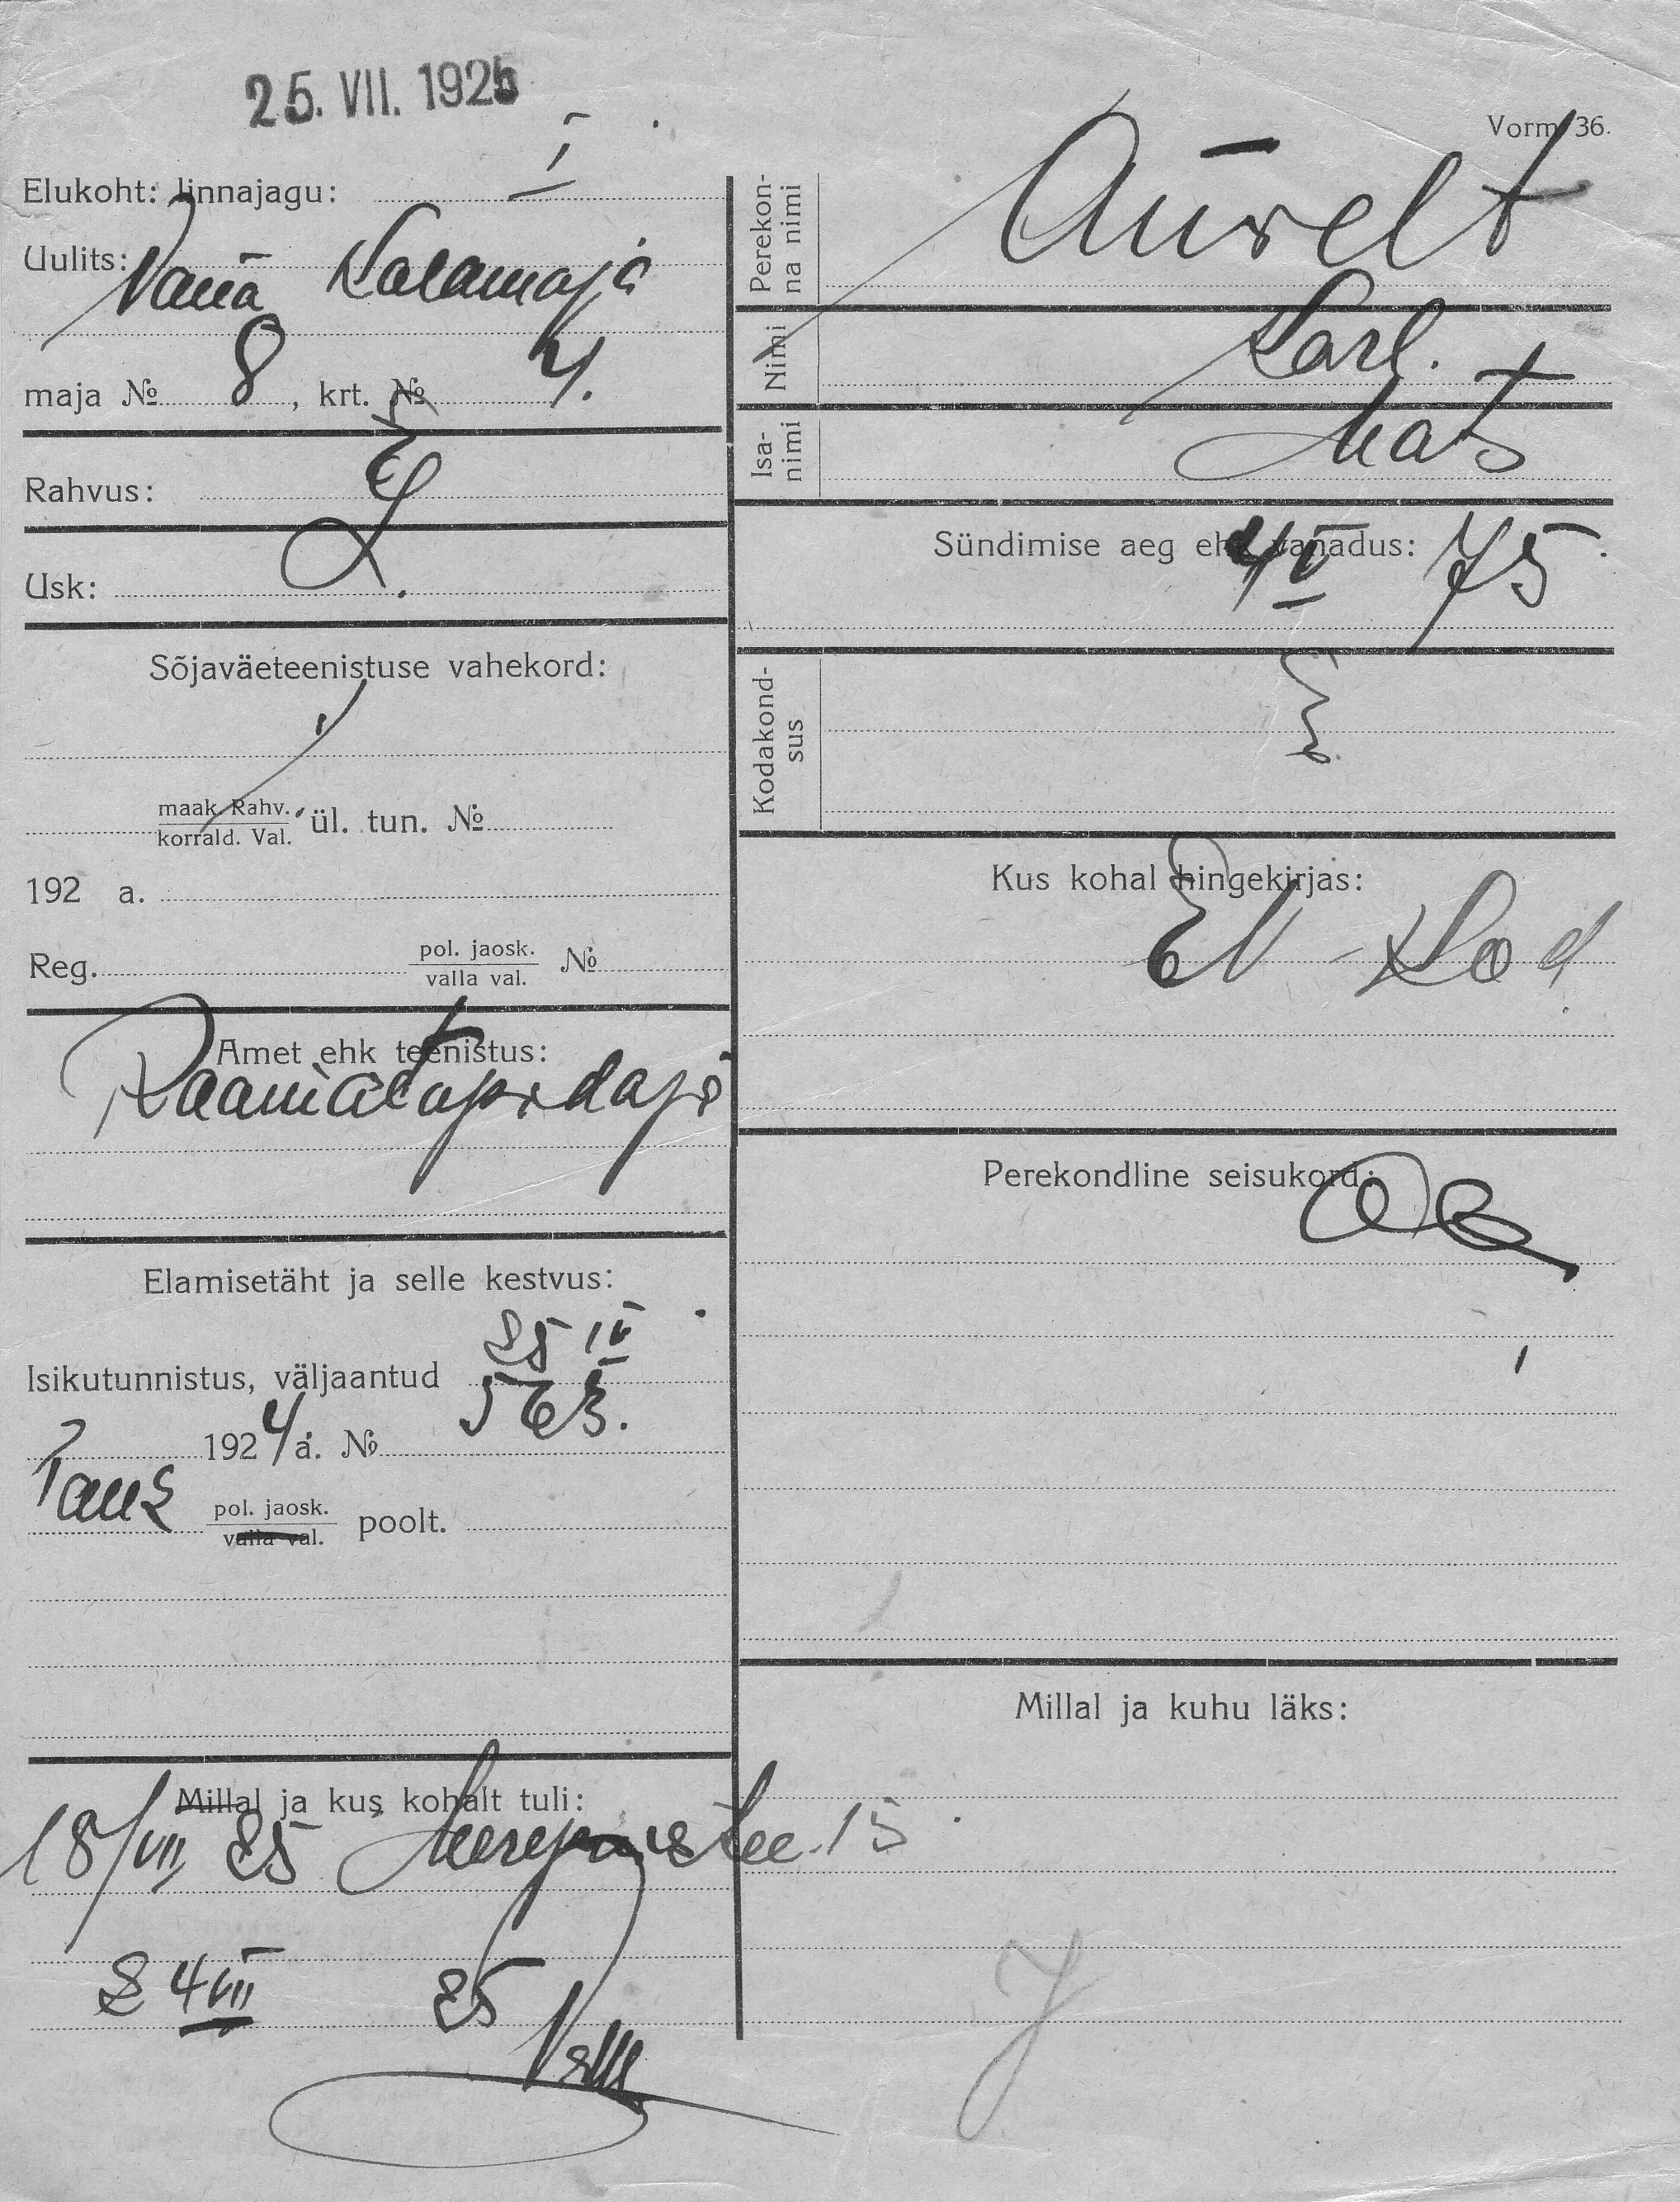 25. VII. 1925
Vorm 36.
Elukoht: linnajagu: I
Uulits: Vana Kalamaja
maja № 8, krt. № 4.
Rahvus: E
Usk: L.
Sõjaväeteenistuse vahekord:
maak. Rahv.
korrald. Val. ül. tun. №
192 a.
Reg. pol. jaosk.
valla val. №
Amet ehk teenistus:
Raamatupidaja
Elamisetäht ja selle kestvus:
25 IV
Isikutunnistus, väljaantud
1924 a. № 563.
pol. jaosk.
valla val. poolt.
Millal ja kus kohalt tuli:
18/VII 25 Merepuiestee 15
24 VII 25
Perekonna nimi Aurelt
Nimi Karl.
Isanimi Mats
Sündimise aeg ehk vanadus: 4 V 75
Kodakondsus E
Kus kohal hingekirjas:
Perekondline seisukord:
Millal ja kuhu läks: